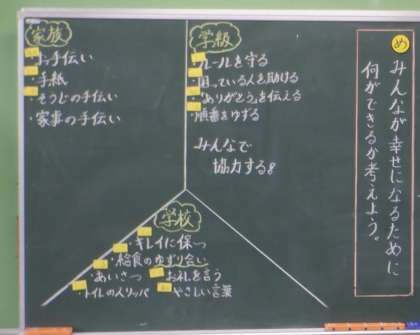 め
みんなが幸せになるために
何ができるか考えよう。
家族
・お手伝い
・手紙
・そうじの手伝い
・家事の手伝い
学級
・ルールを守る
・困っている人を助ける
・「ありがとう」を伝える
・順番をゆずる
みんなで
協力する。
学校
・キレイに保つ
・給食のゆずり合い
・あいさつ
・お礼を言う
・トイレのスリッパ
・やさしい言葉